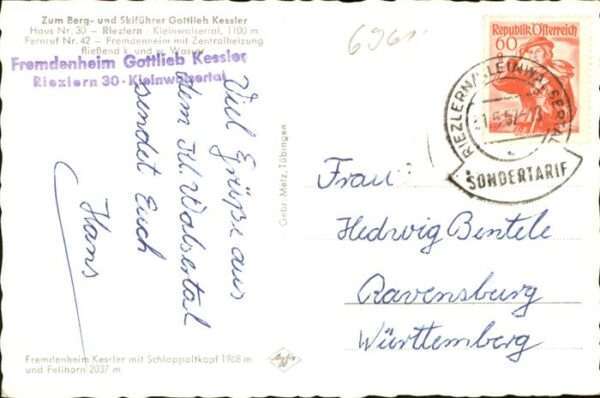 Zum Berg- und Skiführer Gottlieb Kessler
Haus Nr. 30 - Riezlern · Kleinwalsertal, 1100 m
Fernruf Nr. 42 - Fremdenheim mit Zentralheizung
fließend k. und w. Wasser
Fremdenheim Gottlieb Kessler
Riezlern 30 - Kleinwalsertal
Viel Grüße aus
dem Kl. Walsertal
sendet Euch
Hans
Fremdenheim Kessler mit Schlappoltkopf 1968 m
und Fellhorn 2037 m
Gebr. Metz, Tübingen
Republik Österreich
60
RIEZLERN/KLEINWALSERTAL
SONDERTARIF
Frau
Hedwig Bentele
Ravensburg
Württemberg